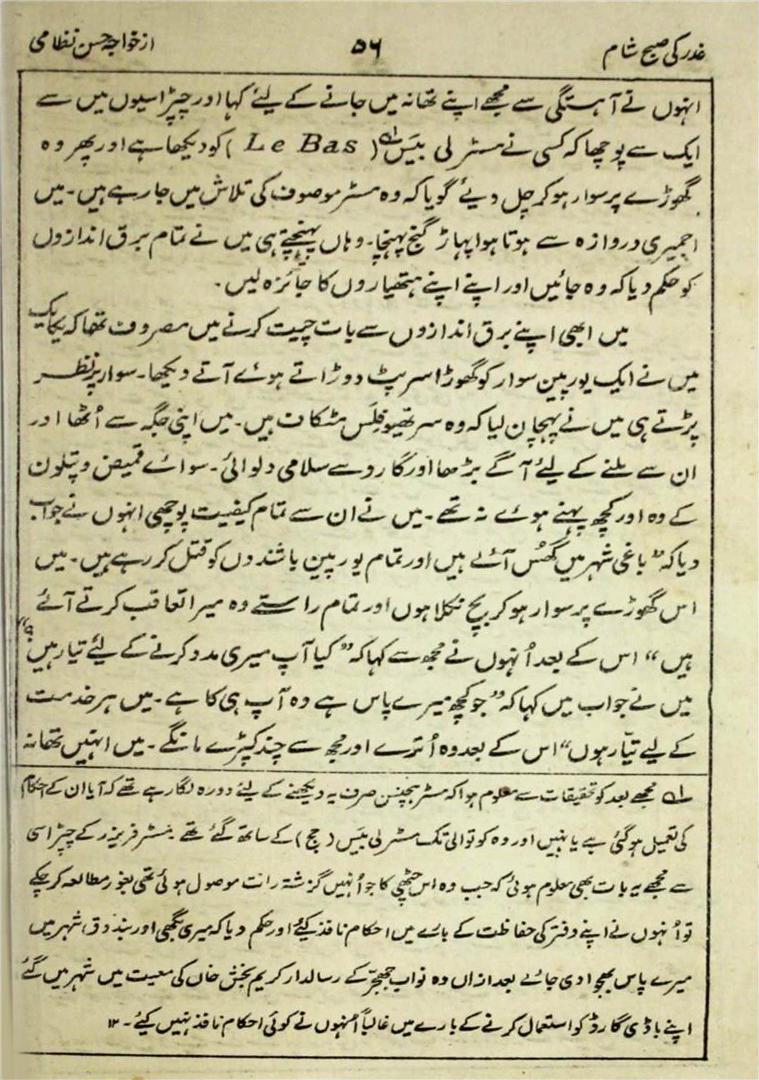 غدر کی صبح شام ۵۶ از خواجہ حسن نظامی
انہوں نے آہستگی سے مجھے اپنے تھانہ میں جانے کے لیئے کہا اور چپڑاسیوں میں سے
ایک سے پوچھا کہ کسی نے مسٹر لی بیس (Le Bas) کو دیکھا ہے اور پھر وہ
گھوڑے پر سوار ہو کر چل دیئے گویا کہ وہ مسٹر موصوف کی تلاش میں جا رہے ہیں۔ میں
اجمیری دروازہ سے ہوتا ہوا پہاڑ گنج پہنچا۔ وہاں پہنچتے ہی میں نے تمام برق اندازوں
کو حکم دیا کہ وہ جائیں اور اپنے اپنے ہتھیاروں کا جائزہ لیں۔
میں ابھی اپنے برق اندازوں سے بات چیت کرنے میں مصروف تھا کہ یکایک
میں نے ایک یورپین سوار کو گھوڑا سرپٹ دوڑاتے ہوئے آتے دیکھا۔ سوار پر نظر
پڑتے ہی میں نے پہچان لیا کہ وہ سر تھیو فلس مٹکاف ہیں۔ میں اپنی جگہ سے اُٹھا اور
ان سے ملنے کے لیئے آگے بڑھا اور گارد سے سلامی دلوائی۔ سوائے قمیض و پتلون
کے وہ اور کچھ پہنے ہوئے نہ تھے۔ میں نے ان سے تمام کیفیت پوچھی انہوں نے جواب
دیا کہ ”باغی شہر میں گھس آئے ہیں اور تمام یورپین باشندوں کو قتل کر رہے ہیں۔ میں
اس گھوڑے پر سوار ہو کر بچ نکلا ہوں اور تمام راستے وہ میرا تعاقب کرتے آئے
ہیں“ اس کے بعد اُنہوں نے مجھ سے کہا کہ ”کیا آپ میری مدد کرنے کے لیئے تیار ہیں؟“
میں نے جواب میں کہا کہ ”جو کچھ میرے پاس ہے وہ آپ ہی کا ہے۔ میں ہر خدمت
کے لیے تیّار ہوں“ اس کے بعد وہ اُترے اور مجھ سے چند کپڑے مانگے۔ میں انہیں تھانہ
لہ مجھے بعد کو تحقیقات سے معلوم ہوا کہ مسٹر ہچنسن صرف یہ دیکھنے کے لیئے دورہ لگا رہے تھے کہ آیا ان کے احکام
کی تعمیل ہو گئی ہے یا نہیں اور وہ کوتوالی تک مسٹر لی بیس (جج) کے ساتھ گئے تھے۔ مسٹر فریزر کے چپڑاسی
سے مجھے یہ بات بھی معلوم ہوئی کہ جب وہ اس چٹھی کا جو اُنہیں گزشتہ رات موصول ہوئی تھی بغور مطالعہ کر چکے
تو اُنہوں نے اپنے دفتر کی حفاظت کے بارے میں احکام نافذ کیئے اور حکم دیا کہ میری بگھی اور بندوق شہر میں
میرے پاس بھجوا دی جائے بعد ازاں وہ نواب جھجر کے رسالدار کریم بخش خاں کی معیت میں شہر میں گئے
اپنے باڈی گارڈ کو استعمال کرنے کے بارے میں غالباً اُنہوں نے کوئی احکام نافذ نہیں کیئے۔ ۱۲